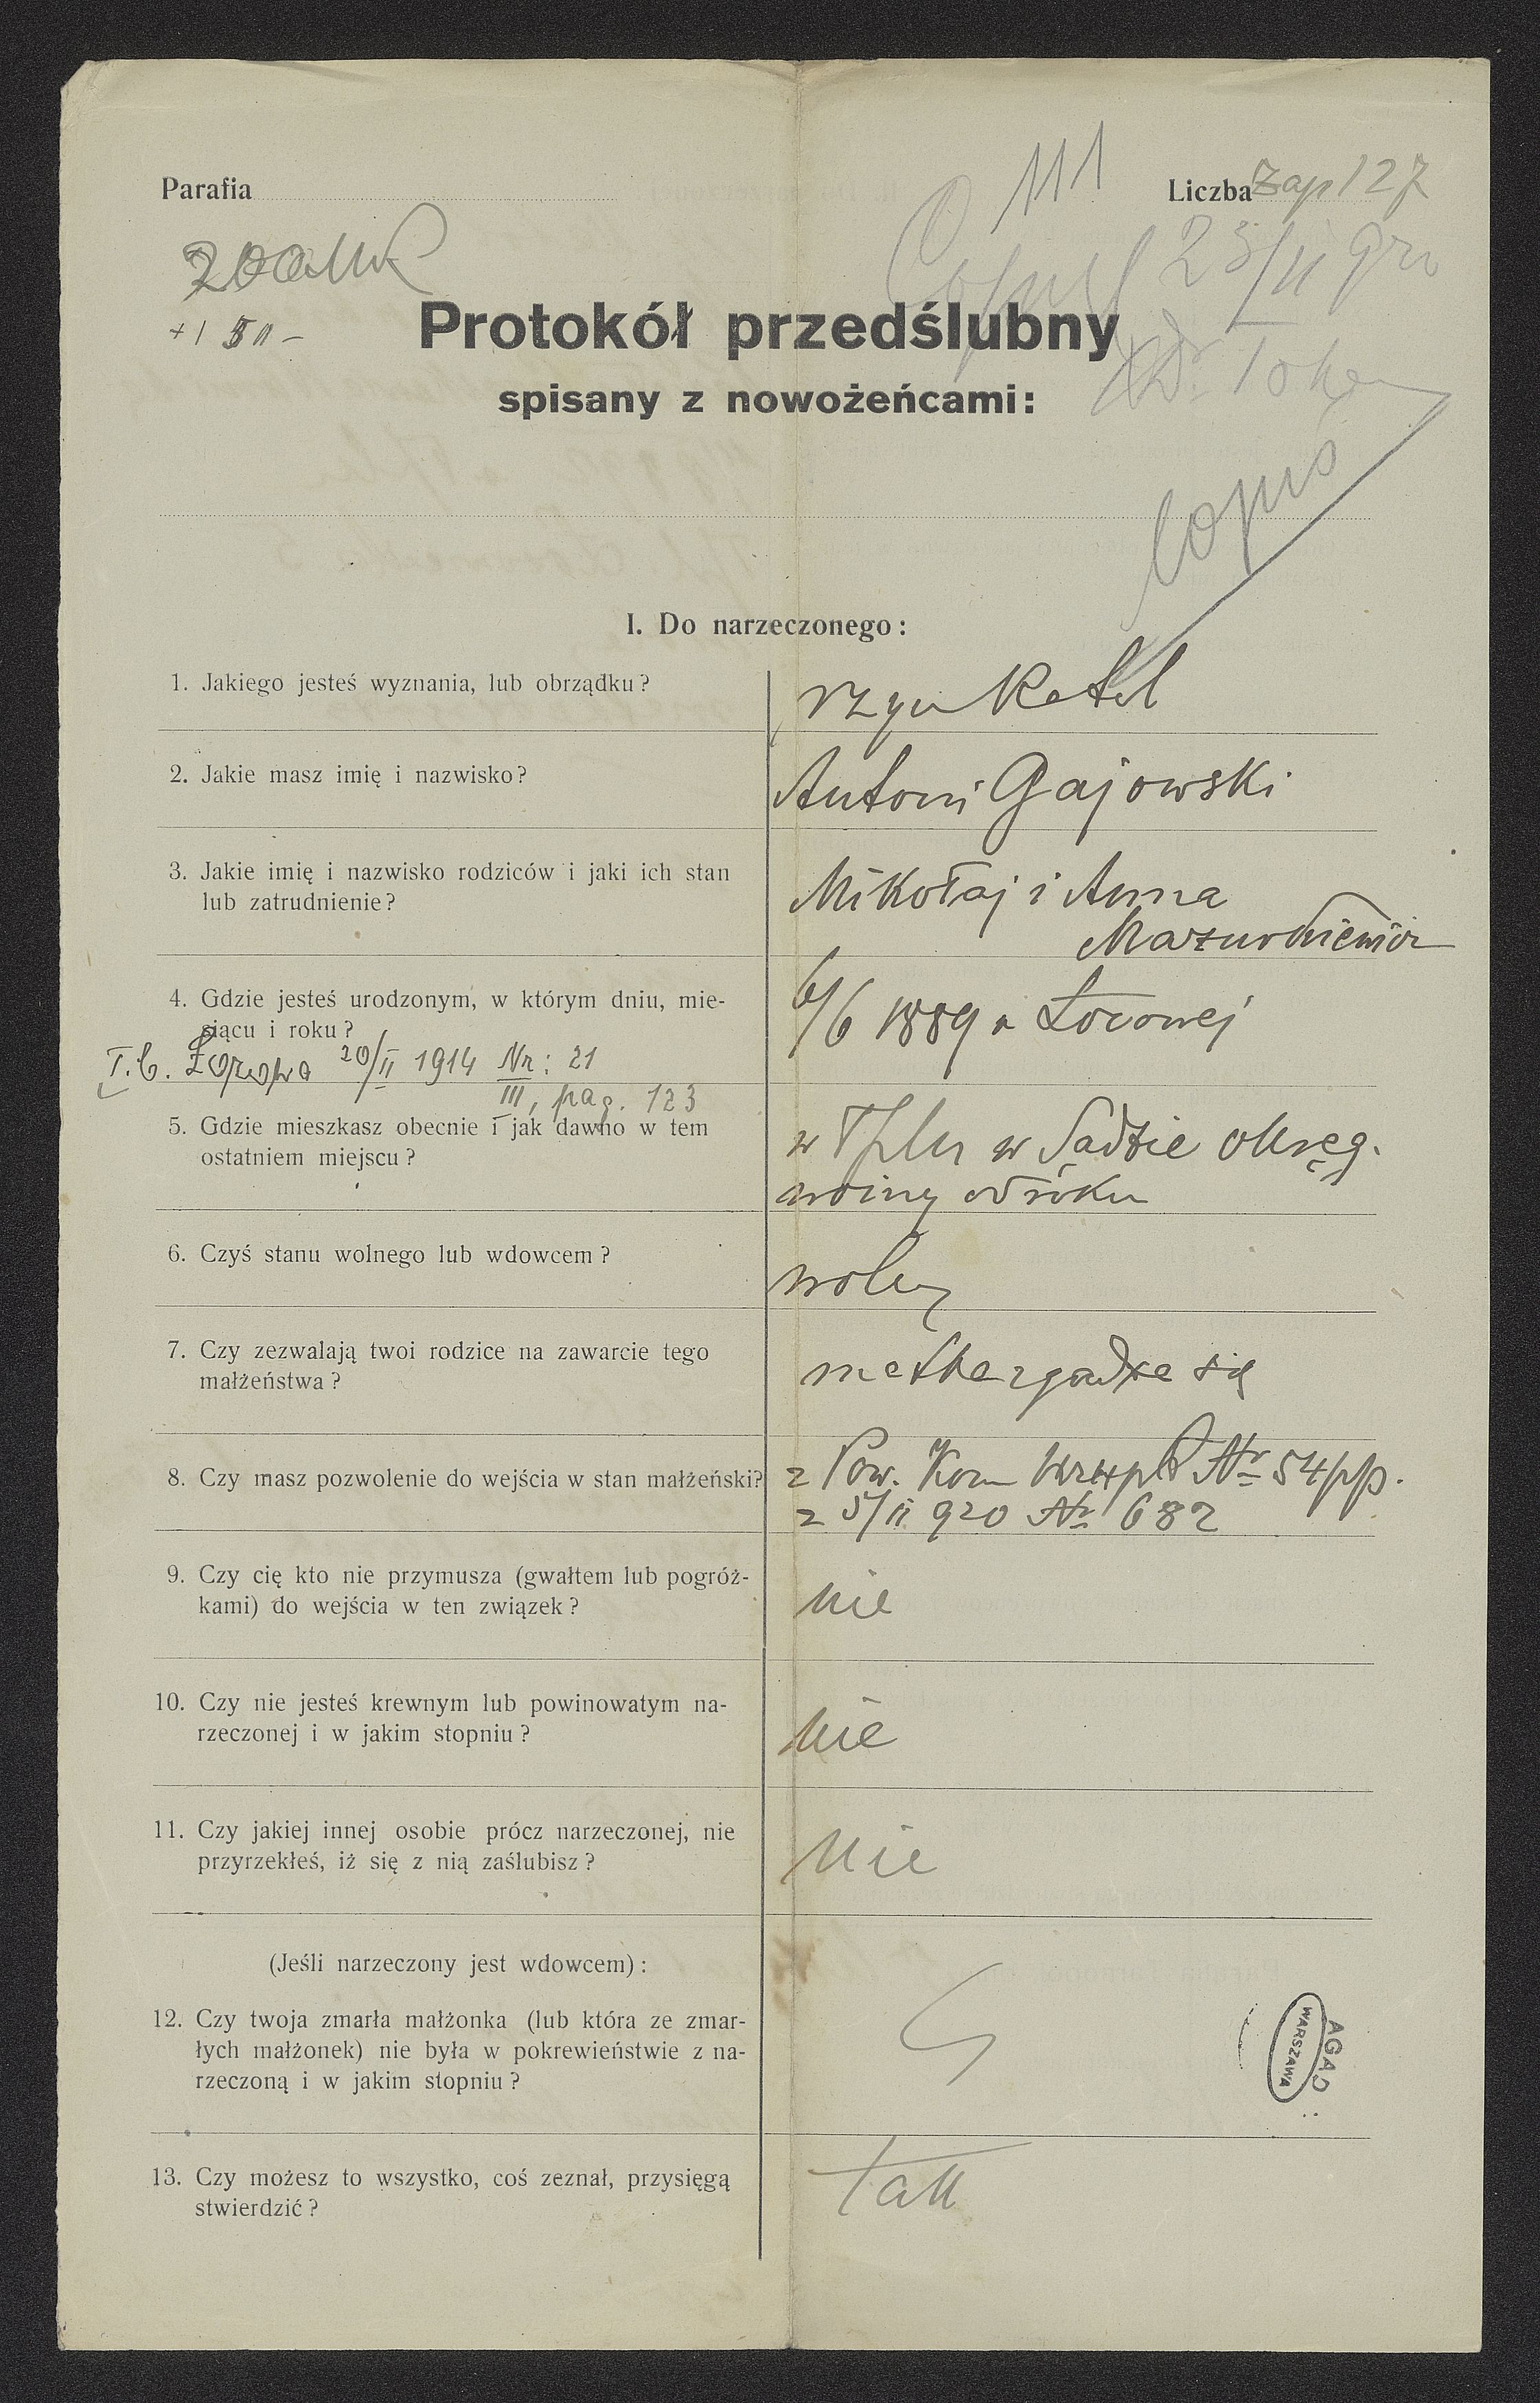 Parafia
111
Liczba Zap 127
Protokół przedślubny
spisany z nowożeńcami:
I. Do narzeczonego:
1. Jakiego jesteś wyznania, lub obrządku?
2. Jakie masz imię i nazwisko?
Antoni Gajowski
3. Jakie imię i nazwisko rodziców i jaki ich stan
lub zatrudnienie?
Mikołaj i Anna
Mazurkiewicz
4. Gdzie jesteś urodzonym, w którym dniu, mie-
siącu i roku?
6/6 1889 w Łozowej
T. b. Łozowa 20/II 1914 Nr: 21
III, pag. 123
5. Gdzie mieszkasz obecnie i jak dawno w tem
ostatniem miejscu?
w Tplu w Sądzie okręg.
od roku
6. Czyś stanu wolnego lub wdowcem?
wolny
7. Czy zezwalają twoi rodzice na zawarcie tego
małżeństwa?
matka zgadza się
8. Czy masz pozwolenie do wejścia w stan małżeński?
z Pow. Kom Nr 54 pp.
z 5/II 920 Nr 682
9. Czy cię kto nie przymusza (gwałtem lub pogróż-
kami) do wejścia w ten związek?
nie
10. Czy nie jesteś krewnym lub powinowatym na-
rzeczonej i w jakim stopniu?
nie
11. Czy jakiej innej osobie prócz narzeczonej, nie
przyrzekłeś, iż się z nią zaślubisz?
nie
(Jeśli narzeczony jest wdowcem):
12. Czy twoja zmarła małżonka (lub która ze zmar-
łych małżonek) nie była w pokrewieństwie z na-
rzeczoną i w jakim stopniu?
AGAD
WARSZAWA
13. Czy możesz to wszystko, coś zeznał, przysięgą
stwierdzić?
tak